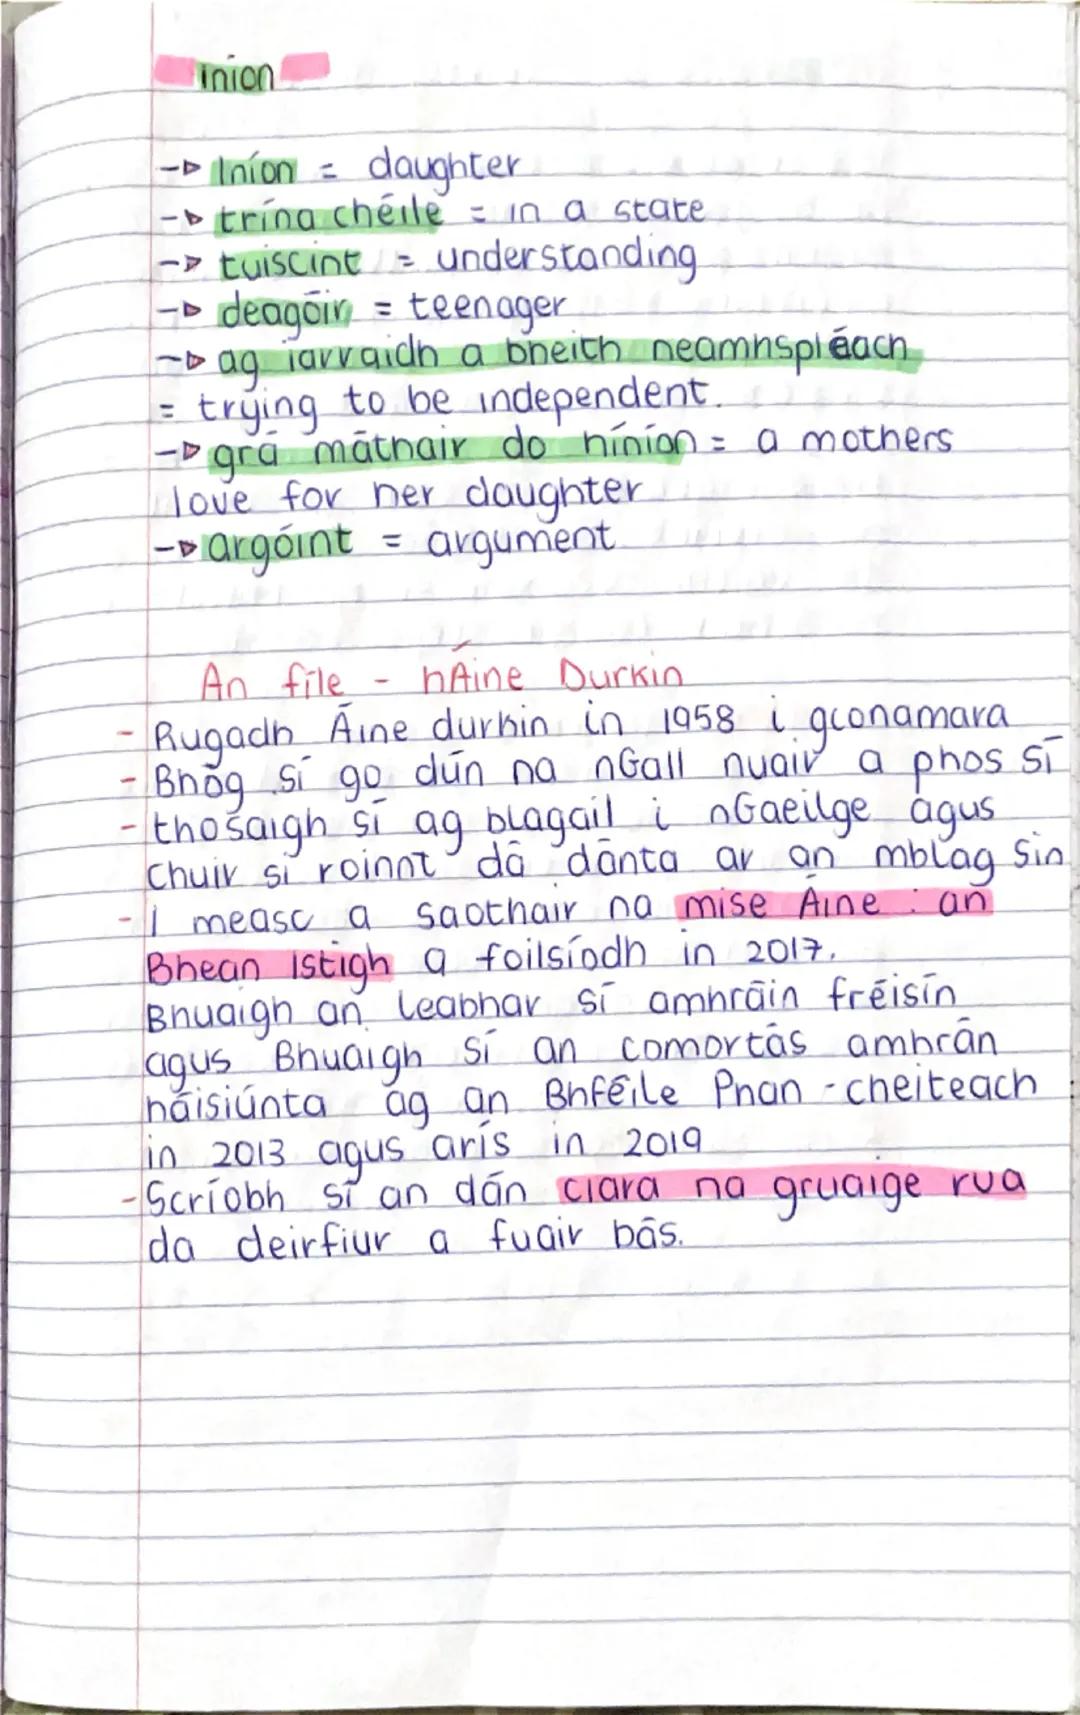 iníon
→ Iníon = daughter
→ trína chéile = in a state
→ tuiscint = understanding
→ deagóir = teenager
→ ag iarraidh a bheith neamhspléach
= trying to be independent.
→ grá máthair do híníon = a mothers
love for her daughter
→ argóint = argument
An file - hÁine Durkin
- Rugadh Áine durkin in 1958 i gconamara
- Bhog sí go dún na nGall nuair a phos sí
- thosaigh sí ag blagáil i nGaeilge agus
Chuir sí roinnt dá dánta ar an mblag sin
- I measc a saothair na mise Áine : an
Bhean Istigh a foilsíodh in 2017.
Bhuaigh an leabhar sí amhráin fréisín
agus Bhuaigh sí an comortás amhrán
náisiúnta ag an Bhféile Phan-cheiteach
in 2013 agus arís in 2019
- Scríobh sí an dán ciara na gruaige rua
da deirfiur a fuair bás.